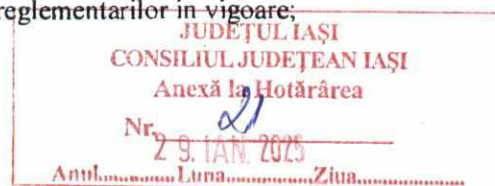 reglementarilor in vigoare;
JUDEȚUL IAȘI
CONSILIUL JUDEȚEAN IAȘI
Anexă la Hotărârea
Nr. 21
29. IAN. 2025
Anul............Luna............Ziua............